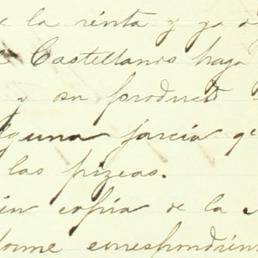 e la renta y ya d
Castellanos haga
y su producto
lguna jarcia q
las pizcas.
ién copia de la
forme correspondient